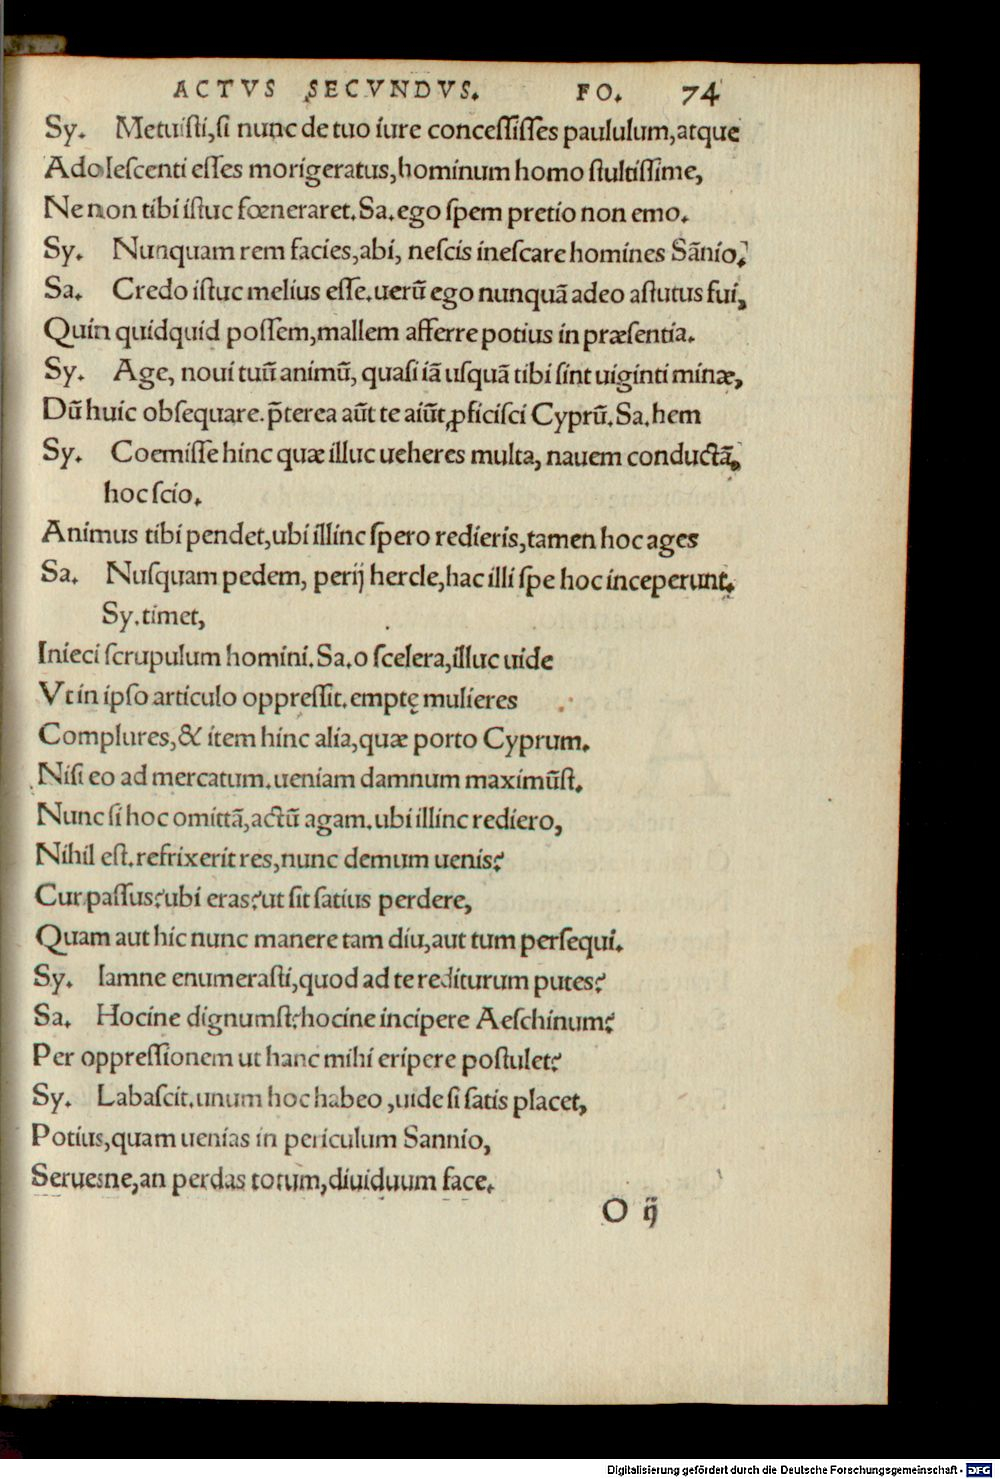 ACTVS SECVNDVS. FO. 74
Sy. Metuisti,si nunc de tuo iure concessisses paululum,atque
Adolescenti esses morigeratus,hominum homo stultissime,
Ne non tibi istuc fœneraret. Sa. ego spem pretio non emo.
Sy. Nunquam rem facies,abi, nescis inescare homines Sãnio.
Sa. Credo istuc melius esse.uerũ ego nunquã adeo astutus fui,
Quin quidquid possem,mallem afferre potius in præsentia.
Sy. Age, noui tuũ animũ, quasi iã usquã tibi sint uiginti minæ,
Dũ huic obsequare. p̃terea aũt te aiũt ꝓficisci Cyprũ. Sa. hem
Sy. Coemisse hinc quæ illuc ueheres multa, nauem conductã,
hoc scio.
Animus tibi pendet,ubi illinc spero redieris,tamen hoc ages
Sa. Nusquam pedem, perij hercle,hac illi spe hoc inceperunt.
Sy. timet,
Inieci scrupulum homini. Sa. o scelera,illuc uide
Vt in ipso articulo oppressit. emptę mulieres
Complures,& item hinc alia,quæ porto Cyprum.
Nisi eo ad mercatum.ueniam damnum maximũst.
Nunc si hoc omittã,actũ agam.ubi illinc rediero,
Nihil est.refrixerit res,nunc demum uenis?
Cur passus?ubi eras?ut sit satius perdere,
Quam aut hic nunc manere tam diu,aut tum persequi.
Sy. Iamne enumerasti,quod ad te rediturum putes?
Sa. Hocine dignumst?hocine incipere Aeschinum?
Per oppressionem ut hanc mihi eripere postulet?
Sy. Labascit.unum hoc habeo ,uide si satis placet,
Potius,quam uenias in periculum Sannio,
Seruesne,an perdas totum,diuiduum face.
O ij
Digitalisierung gefördert durch die Deutsche Forschungsgemeinschaft - DFG